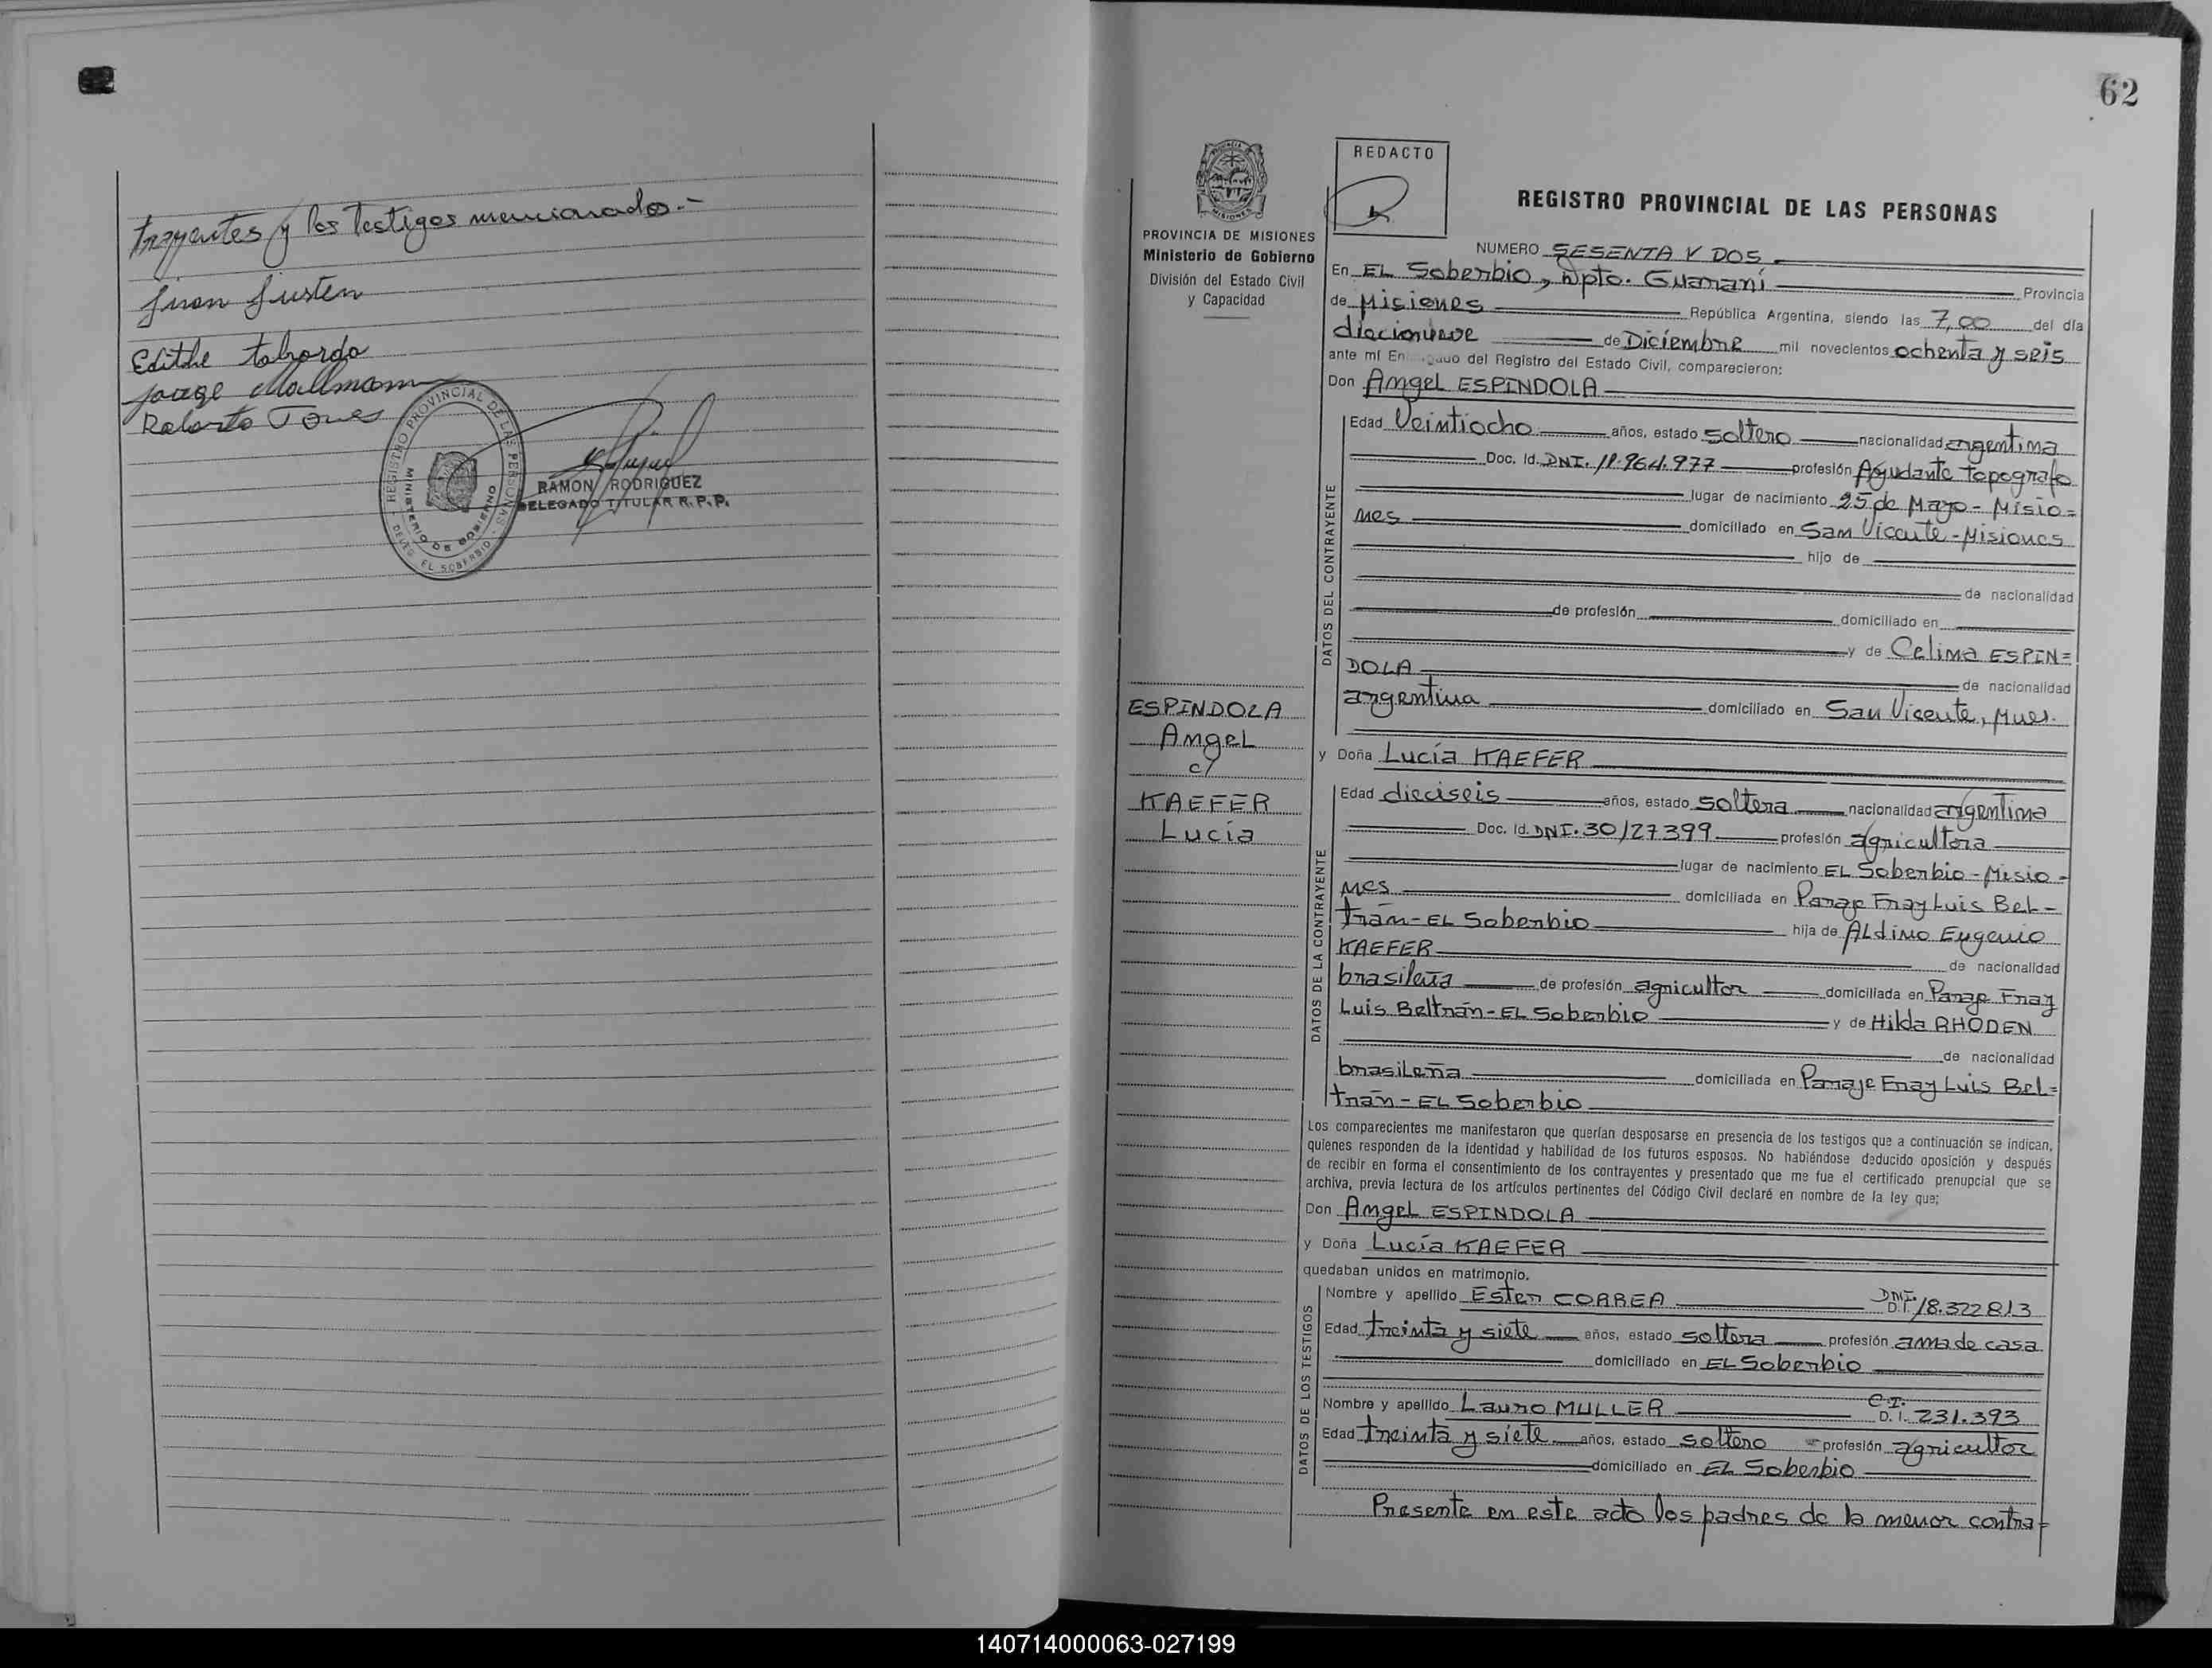 trayentes y los testigos mencionados.-
Juan Justen
Edithe taborda
Jorge Mallmann
Roberto
REGISTRO PROVINCIAL DE LAS PERSONAS
MINISTERIO DE GOBIERNO
DELEG. EL SOBERBIO
RAMON RODRIGUEZ
DELEGADO TITULAR R.P.P.
62
REDACTO
PROVINCIA DE MISIONES
Ministerio de Gobierno
División del Estado Civil
y Capacidad
REGISTRO PROVINCIAL DE LAS PERSONAS
NUMERO SESENTA Y DOS
En EL Soberbio, Dpto. Guaraní Provincia
de Misiones República Argentina, siendo las 7,00 del día
diecinueve de Diciembre mil novecientos ochenta y seis
ante mí En gado del Registro del Estado Civil, comparecieron:
Don Angel ESPINDOLA
DATOS DEL CONTRAYENTE
Edad Veintiocho años, estado soltero nacionalidad argentina
Doc. Id. DNI. 11.964.977 profesión Ayudante topografo
lugar de nacimiento 25 de Mayo - Misio=
nes domiciliado en San Vicente - Misiones
hijo de
de nacionalidad
de profesión domiciliado en
y de Celima ESPIN=
DOLA de nacionalidad
argentina domiciliado en San Vicente, Mnes.
ESPINDOLA
Angel
c/
KAEFER
Lucía
y Doña Lucía KAEFER
DATOS DE LA CONTRAYENTE
Edad dieciseis años, estado soltera nacionalidad argentina
Doc. Id. DNI. 30127399 profesión agricultora
lugar de nacimiento EL Soberbio - Misio-
nes domiciliada en Paraje Fray Luis Bel-
trán - EL Soberbio hija de Aldino Eugenio
KAEFER de nacionalidad
brasileña de profesión agricultor domiciliada en Paraje Fray
Luis Beltrán - EL Soberbio y de Hilda RHODEN
de nacionalidad
brasileña domiciliada en Paraje Fray Luis Bel=
trán - EL Soberbio
Los comparecientes me manifestaron que querían desposarse en presencia de los testigos que a continuación se indican,
quienes responden de la identidad y habilidad de los futuros esposos. No habiéndose deducido oposición y después
de recibir en forma el consentimiento de los contrayentes y presentado que me fue el certificado prenupcial que se
archiva, previa lectura de los artículos pertinentes del Código Civil declaré en nombre de la ley que;
Don Angel ESPINDOLA
y Doña Lucía KAEFER
quedaban unidos en matrimonio.
DATOS DE LOS TESTIGOS
Nombre y apellido Ester CORREA DNI. D.I. 18.322.813
Edad treinta y siete años, estado soltera profesión ama de casa
domiciliado en EL Soberbio
Nombre y apellido Lauro MULLER C.I. D.I. 231.393
Edad treinta y siete años, estado soltero profesión agricultor
domiciliado en EL Soberbio
Presente en este acto los padres de la menor contra=
140714000063-027199